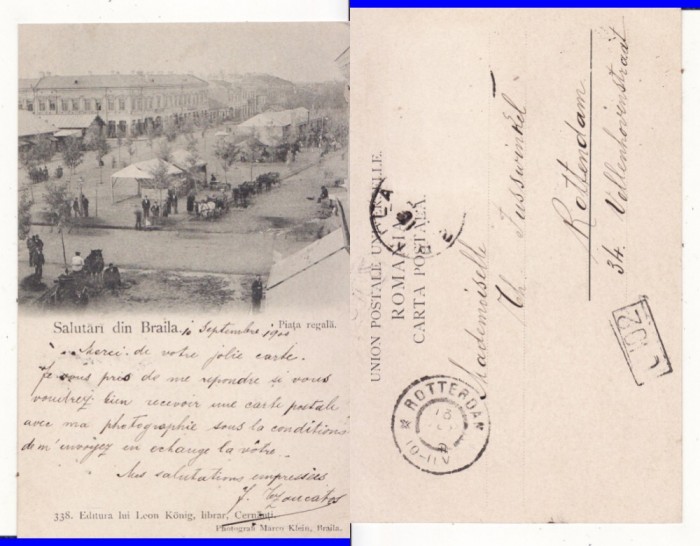 Salutări din Braila.
Piața regală.
10 Septembre 1900
Merci de votre jolie carte.
Je vous pris de me repondre si vous
voudrez bien recevoir une carte postale
avec ma photographie sous la conditions
de m'envoyez en echange la vôtre.
Mes salutations empressées
338. Editura lui Leon König, librar, Cernăuți.
Photograf Marco Klein, Braila.
UNION POSTALE UNIVERSELLE.
ROMANIA
CARTA POSTALĂ.
Mademoiselle
Rotterdam
34. Vellenhovenstraat
ROTTERDAM